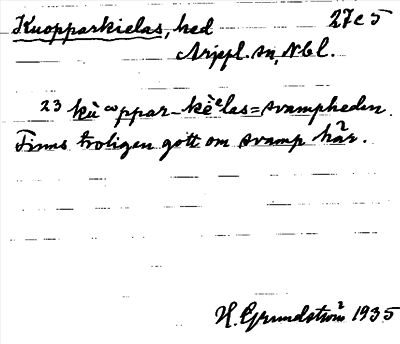 Kuopparkielas, hed 27c5
Arjepl. sn, Nbl.
23 kùωppar-kèᵉlas = svampheden.
Finns troligen gott om svamp här.
H. Grundström 1935